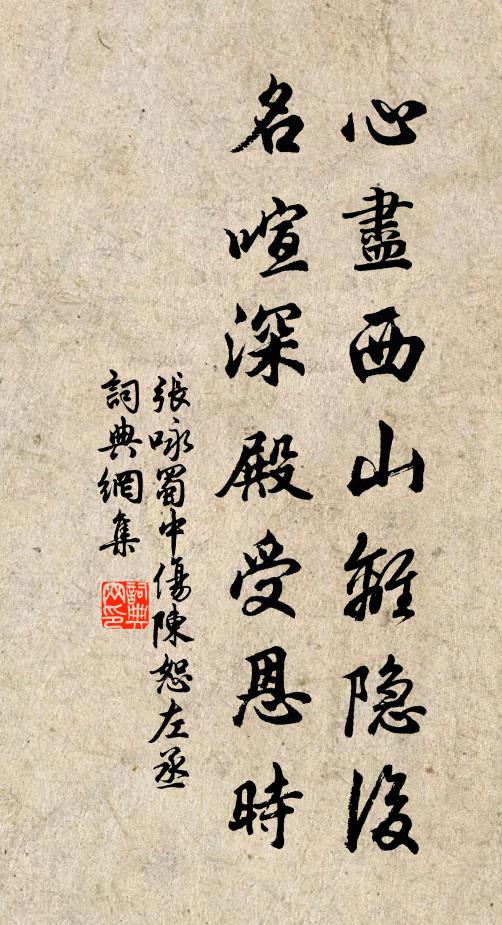 心盡西山離隐後
名喧深殿受恩時
張咏蜀中傷陳恕左丞
詞典網集
詞典網印